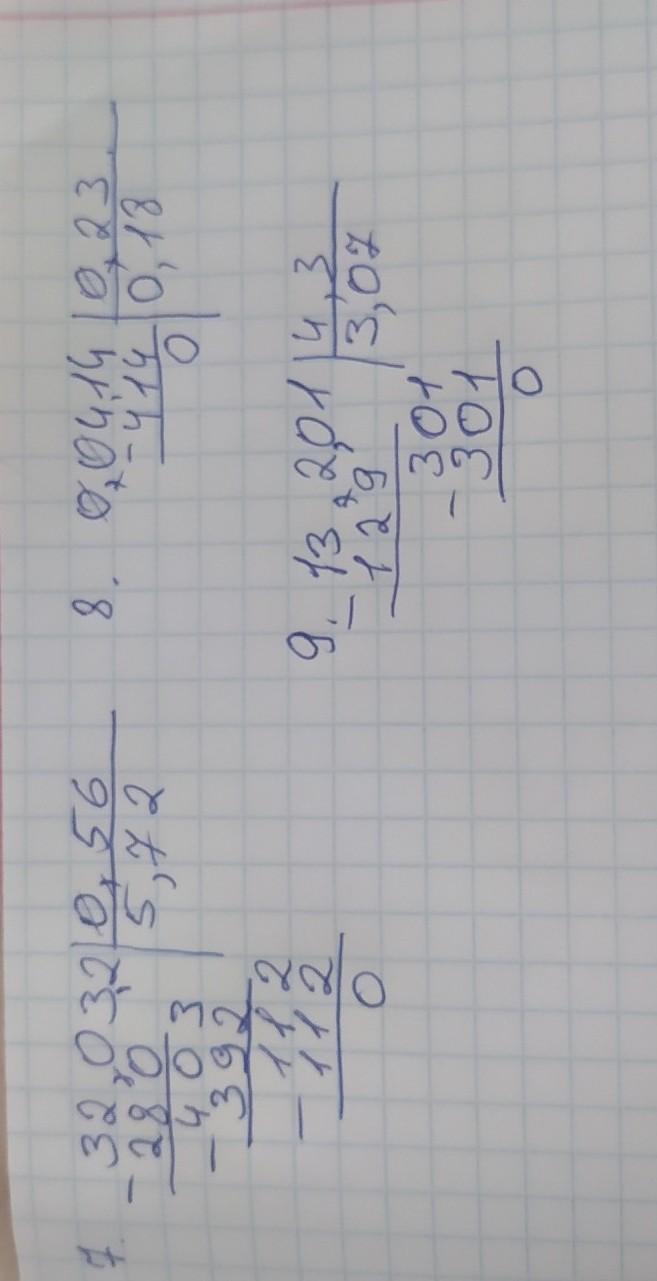 7. - 32,03,2 | 0,56
280 | 5,72
403
- 392
112
- 112
0
8. 0,04,14 | 0,23
- 414 | 0,18
0
9. - 13,2,01 | 4,3
129 | 3,07
301
- 301
0